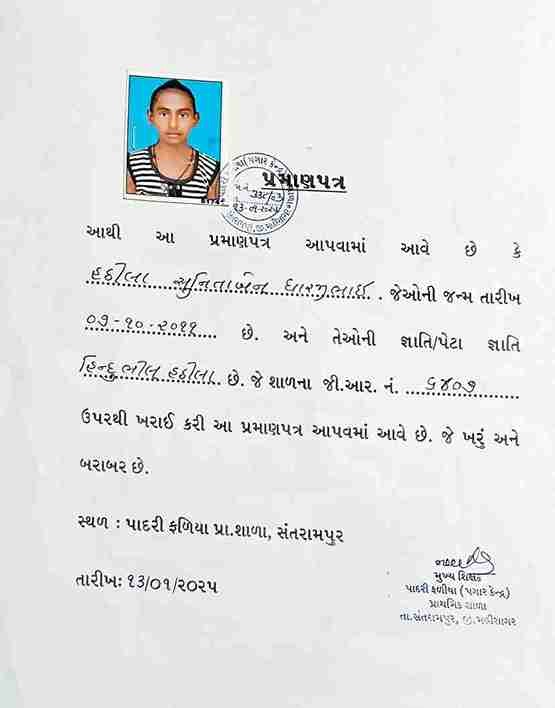 પ્રમાણપત્ર
આથી આ પ્રમાણપત્ર આપવામાં આવે છે કે
હઠીલા સુનિતાબેન ધારજીભાઈ. જેઓની જન્મ તારીખ
૦૭-૧૦-૨૦૧૧ છે. અને તેઓની જ્ઞાતિ/પેટા જ્ઞાતિ
હિન્દુ ભીલ હઠીલા. છે. જે શાળના જી.આર. નં. ૬૪૦૭
ઉપરથી ખરાઈ કરી આ પ્રમાણપત્ર આપવમાં આવે છે. જે ખરું અને
બરાબર છે.
સ્થળ : પાદરી ફળિયા પ્રા.શાળા, સંતરામપુર
તારીખઃ ૧૩/૦૧/૨૦૨૫
મુખ્ય શિક્ષક
પાદરી ફળીયા (પગાર કેન્દ્ર)
પ્રાથમિક શાળા
તા.સંતરામપુર, જી.મહીસાગર